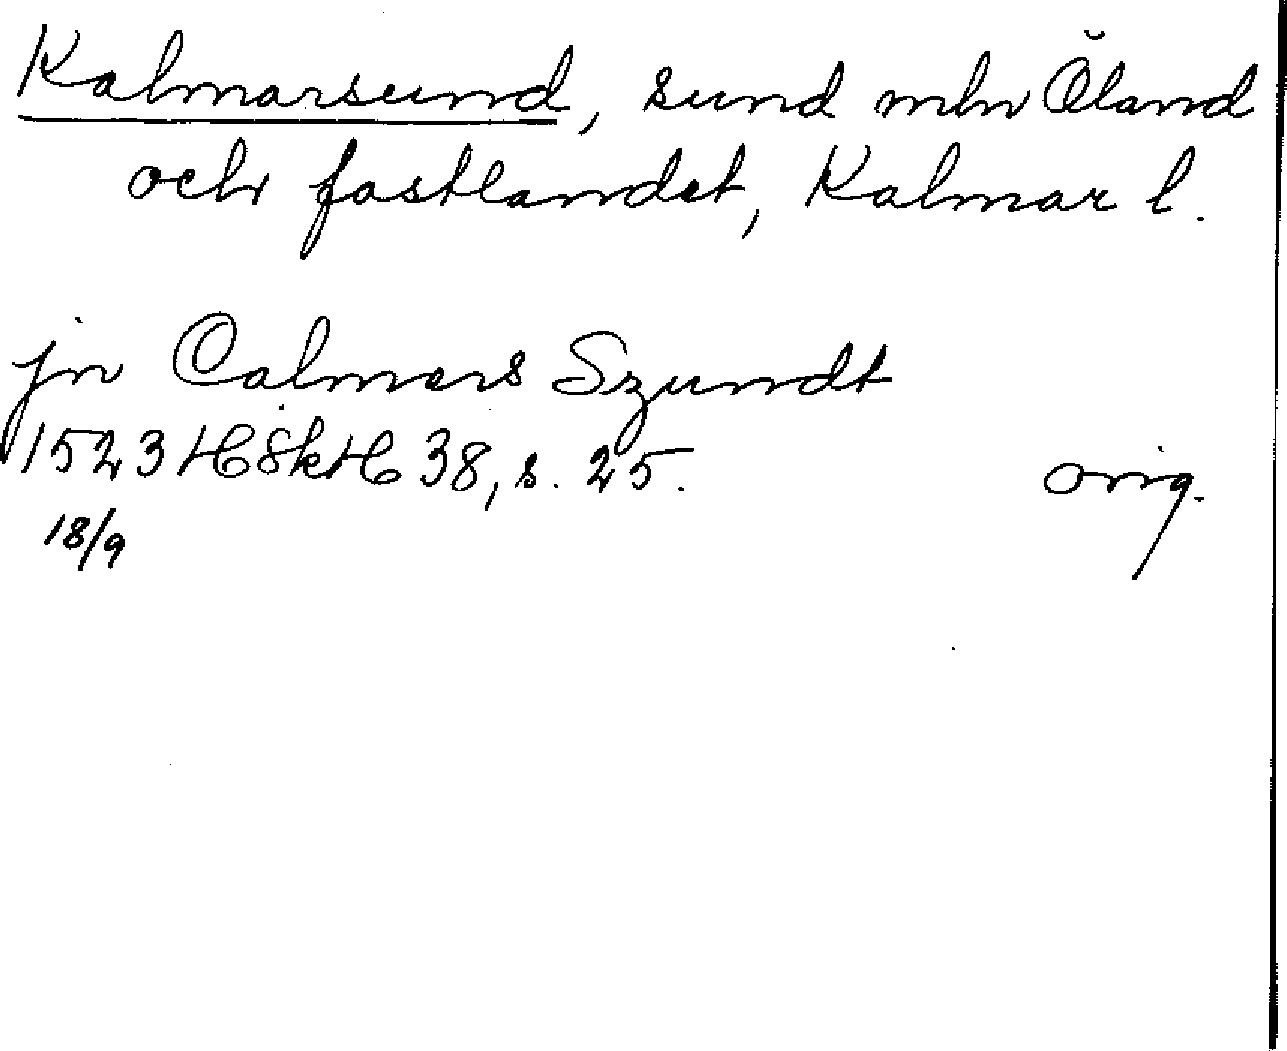 Kalmarsund, sund mln Öland
och fastlandet, Kalmar l.
jn Calmers Szundt
1523 HSkH 38, s. 25. orig.
18/9